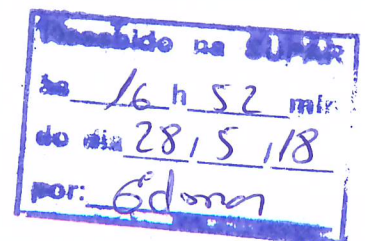 Recebido na SUPAR
às 16 h 52 min
do dia 28, 5, 18
por: Edona